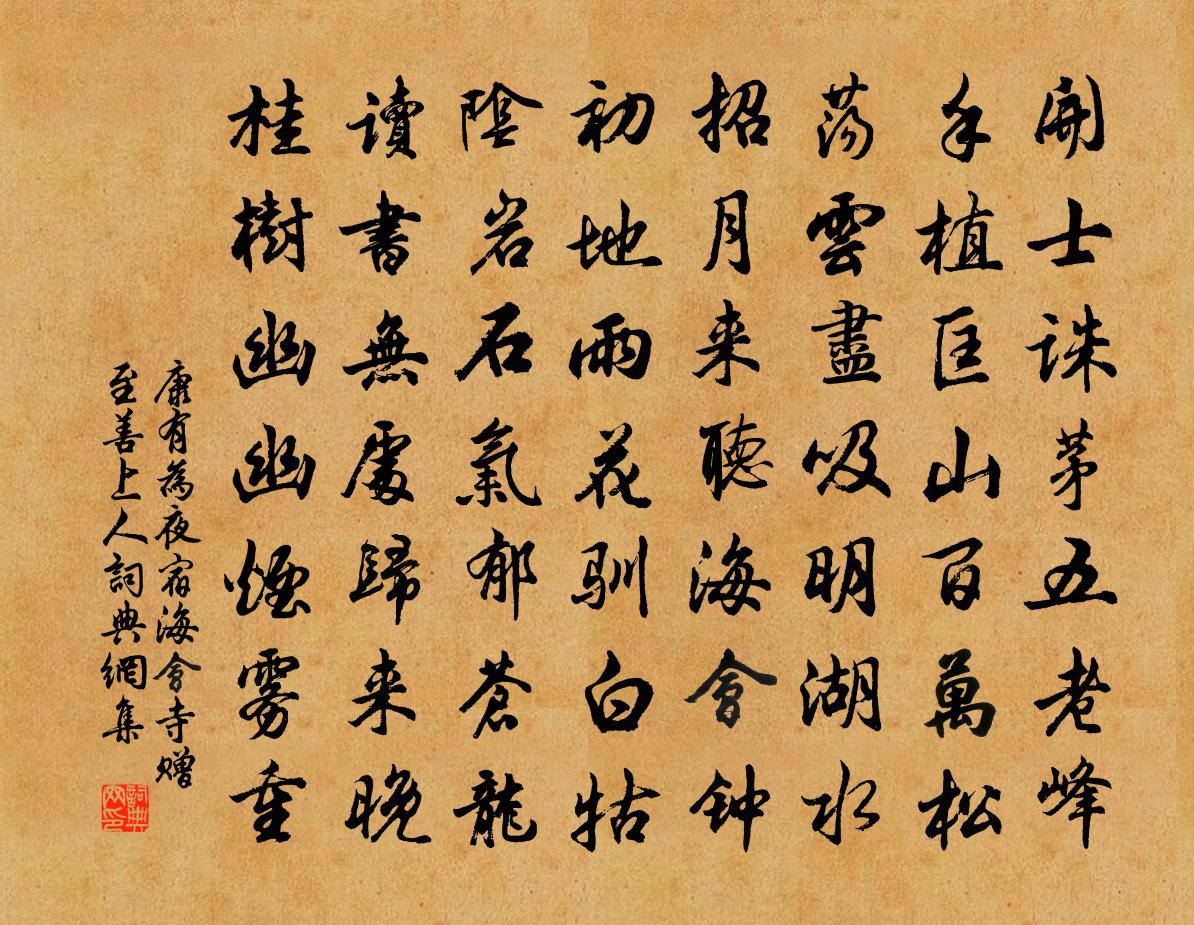 開士誅茅五老峰
手植匡山百萬松
蕩雲盡吸明湖水
招月来聽海會钟
初地雨花馴白牯
陰岩石氣郁蒼龍
讀書無處歸来晚
桂樹幽幽煙雾重
康有為夜宿海會寺赠
至善上人詞典網集
詞典网印